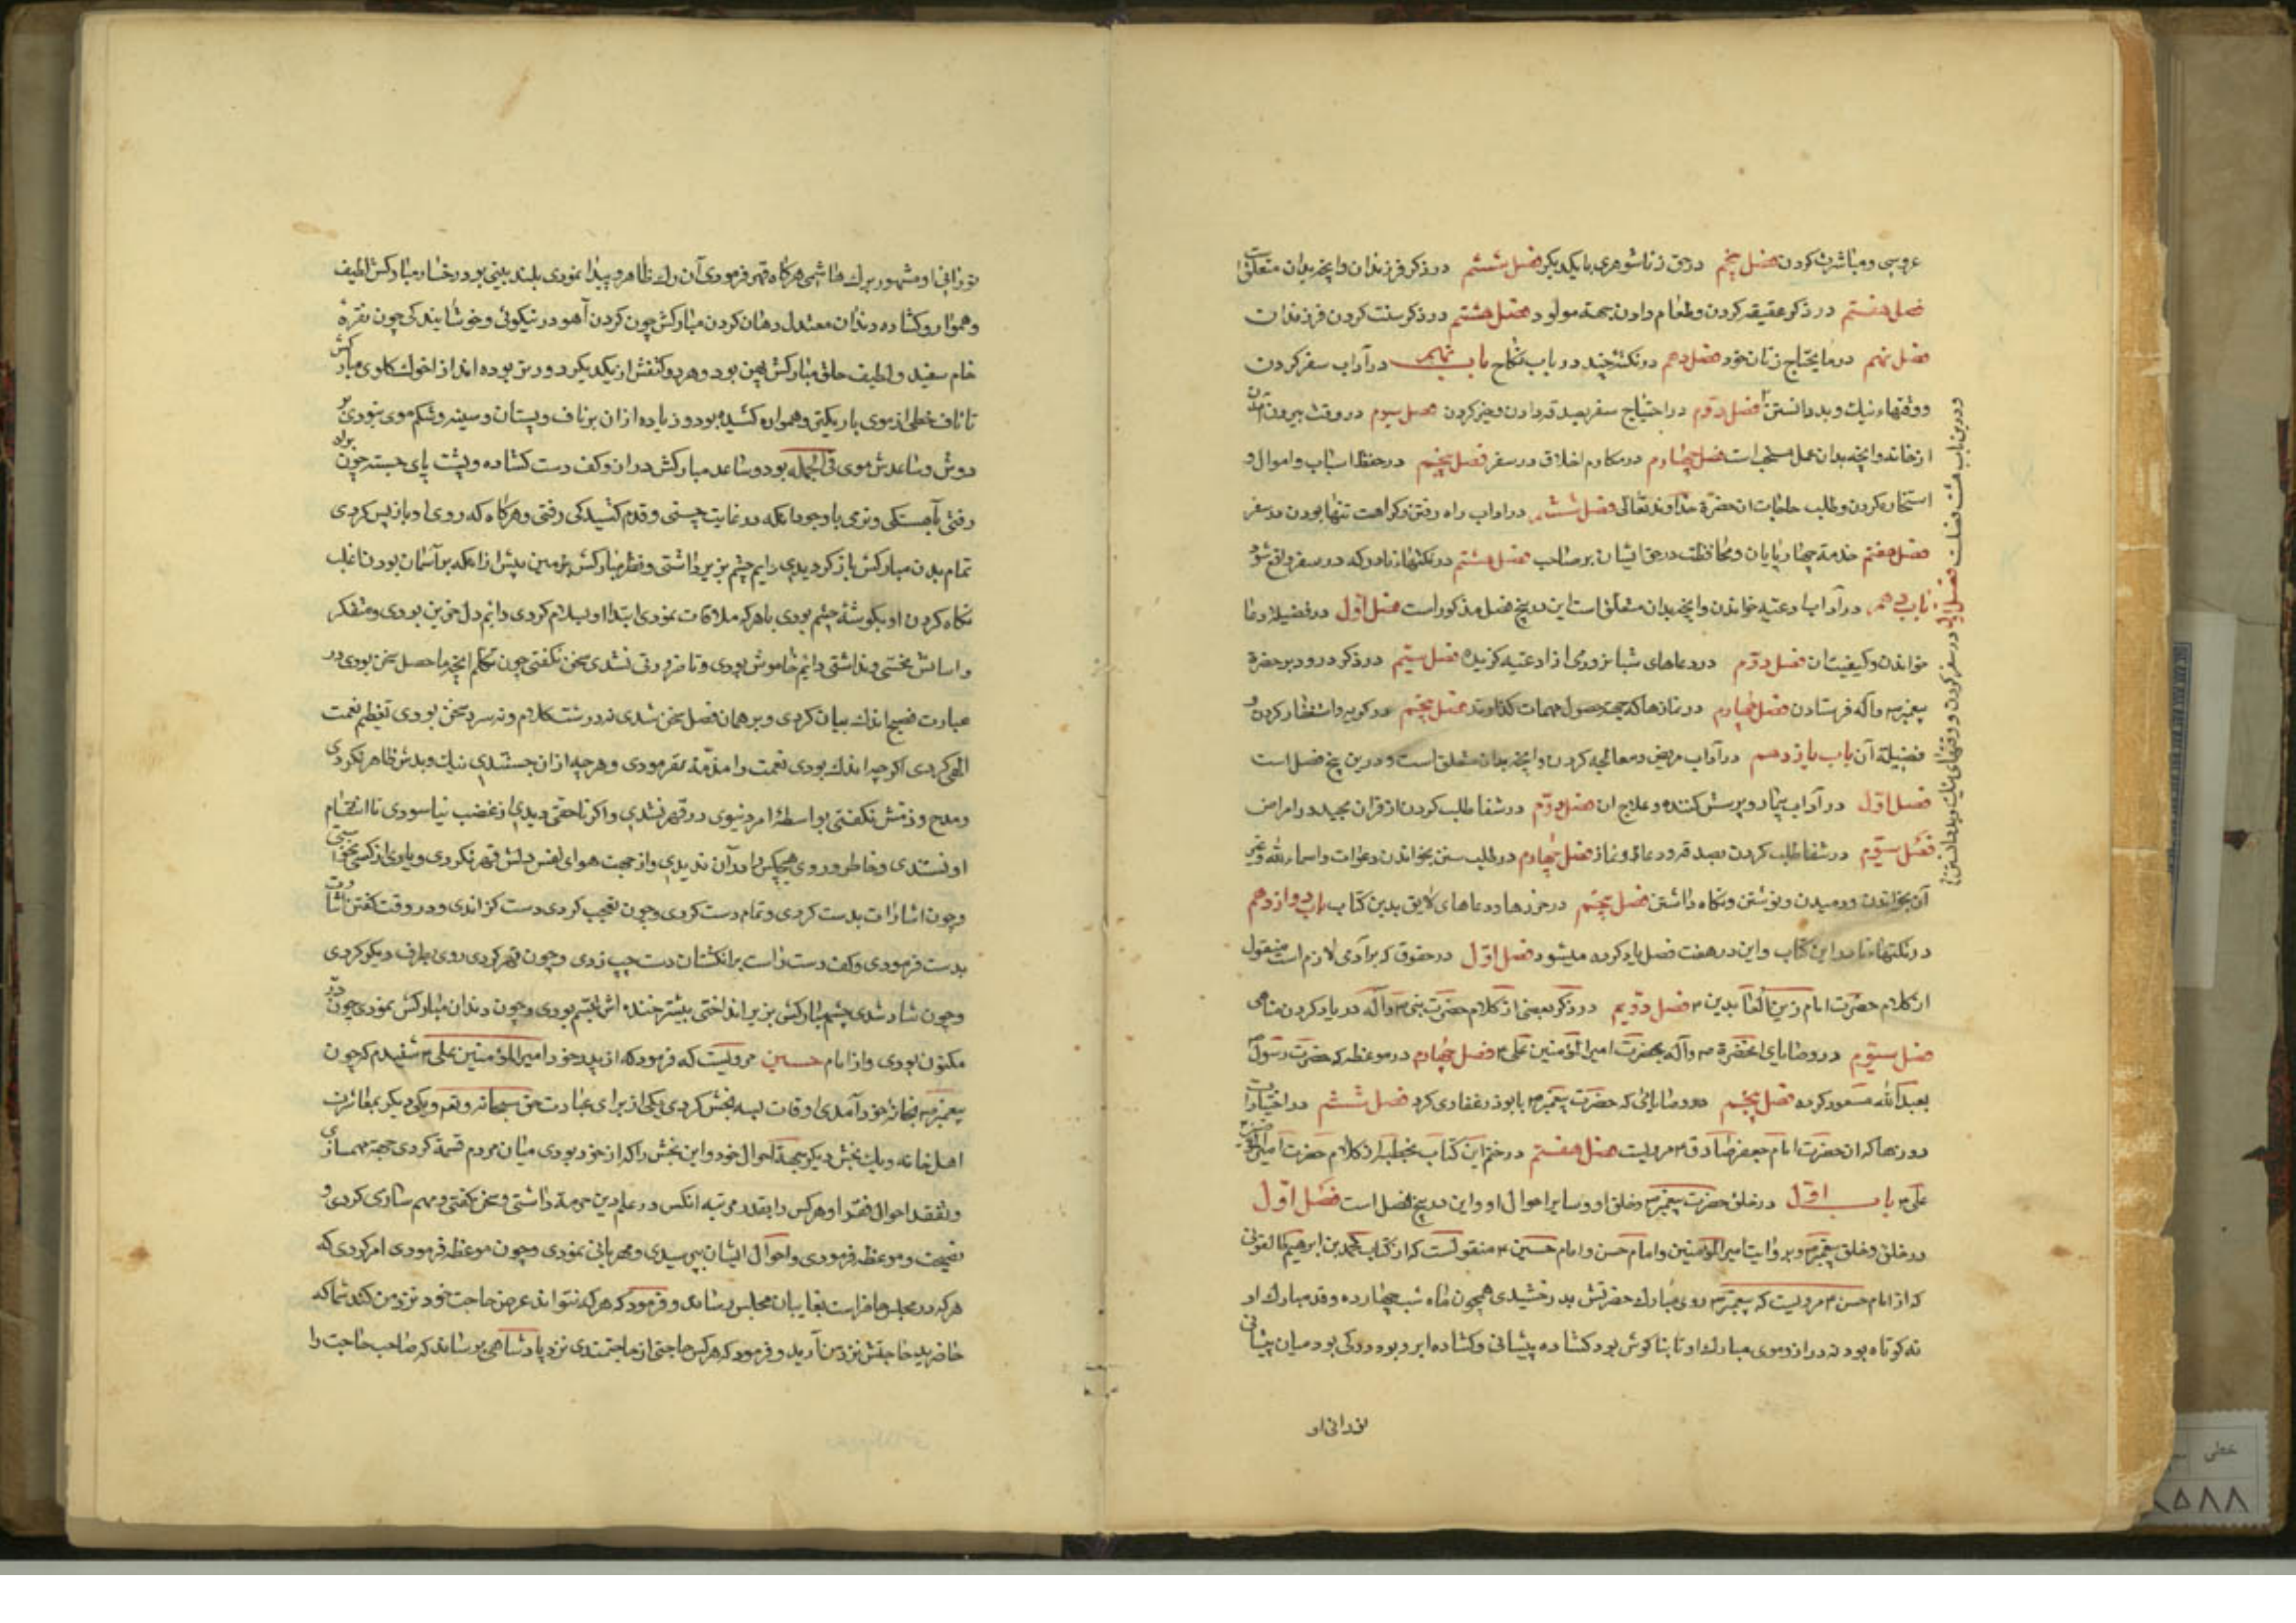 عروسی و مباشرت کردن فصل پنجم در حق زناشوهری با یکدیکر فصل ششم در ذکر فرزندان و انچه بدان متعلق است
فصل هفتم در ذکر عقیقه کردن و طعام دادن بجهة مولود فصل هشتم در ذکر سنت کردن فرزندان
فصل نهم در ما یحتاج زنان خود فصل دهم در نکتهٔ چند در باب نکاح باب نهم در آداب سفر کردن
و وقتهاء نیك و بد دانستن فصل دوّم در احتیاج سفر بصدقه دادن و خیر کردن فصل سیوم در وقت بیرون آمدن
از خانه و انچه بدان عمل مستحب است فصل چهارم در مکارم اخلاق در سفر فصل پنجم در حفظ اسباب و اموال و
استخاره کردن و طلب حاجات از حضرة خداوند تعالی فصل ششم در اداب راه رفتن و کراهت تنها بودن در سفر
فصل هفتم خدمة چهار پایان و محافظت در حق ایشان بر صاحب فصل هشتم در نکتهاء نادر که در سفر واقع شود
باب دهم در آداب ادعیه خواندن و انچه بدان متعلق است این در پنج فصل مذکور است فصل اول در فضیلة دعا
خواندن و کیفیت ان فصل دوّم در دعاهای شبانروزی از ادعیه کزیده فصل سیّم در ذکر درود بر حضرة
پیغمبر و آله فرستادن فصل چهارم در نمازها که جهة حصول مهمات کذارند فصل پنجم در کریه و استغفار کردن و
فضیلة آن باب یازدهم در آداب مریض و معالجه کردن و انچه بدان متعلق است و درین پنج فصل است
فصل اوّل در آداب بیمار و پرسش کننده و علاج ان فصل دوّم در شفا طلب کردن از قران مجید در امراض
فصل سیّوم در شفا طلب کردن بصدقه و دعا و نماز فصل چهارم در طلب ستن بخواندن دعوات و اسماء الله و غیر
آن بخواندن و دمیدن و نوشتن و نکاه داشتن فصل پنجم در حرزها و دعاهای لایق بدین کتاب باب دوازدهم
در نکتهاء نادر این کتاب و این در هفت فصل یاد کرده میشود فصل اوّل در حقوق که بر آدمی لازم است منقول
از کلام حضرت امام زین العابدین فصل دوّیم در ذکر بعضی از کلام حضرت نبی و آله در یاد کردن مناهی
فصل سیّوم در وصایای انحضرة و آله بحضرت امیر المؤمنین علی فصل چهارم در موعظه که حضرت رسول
بعبد الله مسعود کرده فصل پنجم در وصایائی که حضرت پیغمبر بابوذر غفاری کرد فصل ششم در اختیارات
دورنها که از حضرت امام جعفر صادق مرویست فصل هفتم در ختم این کتاب بخطبه از کلام حضرت امیر المؤمنین
علی باب اوّل در خلق حضرت پیغمبر و خلق او و سایر احوال او و این در پنج فصل است فصل اوّل
در خلق و خلق پیغمبر و بروایت امیر المؤمنین و امام حسن و امام حسین منقولست که از کتاب محمد بن ابرهیم طالقانی
که از امام حسن مرویست که پیغمبر روی مبارك حضرتش بدرخشیدی همچون ماه شب چهارده و قد مبارك او
نه کوتاه بود نه دراز و موی مبارك او تا بناکوش بود کشاده پیشانی و کشاده ابرو بود و رکی بود میان پیشانی
نورانی او
و درین باب هشت فصلست فصل اول در سفر کردن و وقتهای نیك و بد دانستن
نورانی او مشهور برك هاشمی هرکاه قهر فرمودی آن رك ظاهر و پیدا نمودی بلند بینی بود رخسار مبارکش لطیف
و هموار و کشاده دندان معتدل دهان کردن مبارکش چون کردن آهو در نیکوئی و خوشایندکی چون نقرهٔ
خام سفید و لطیف خلق مبارکش پهن بود و هر دو کتفش از یکدیکر دورتر بوده اند از اخولك کلوی مبارکش
تا ناف خطی از موی باریکتر و هموار کشیده بود و زیاده ازان بر ناف و پستان و سینه و شکم موی نبودی و بر
دوش و ساعدش موی فی الجمله بود و ساعد مبارکش دران و کف دست کشاده و پشت پای جسته چون براه
رفتی بآهستکی و نرمی با وجود انکه در غایت چستی و قدم کشیدکی رفتی و هرکاه که روی او باز پس کردی
تمام بدن مبارکش باز کردیدی دایم چشم بزیر داشتی و نظر مبارکش بزمین بیش از انکه بر آسمان بود ن اغلب
نکاه کردن او بکوشهٔ چشم بودی با هر که ملاقات نمودی ابتدا او سلام کردی دائم دل حزین بودی و متفکر
و اسائش نجستی و نداشتی دائم خاموش بودی و تا ضرورتی نشدی سخن نکفتی چون تکلم انچه ما حصل سخن بودی در
عبارت فصیح اندك بیان کردی و بر همان فصل سخن شدی نه درشت کلام و نه سرد سخن بودی تعظیم نعمت
الهی کردی اکر چه اندك بودی نعمت را مذمّة نفرمودی و هر چه ازان جستندی نیك و بدش ظاهر نکردی
و مدح و ذمّش نکفتی بواسطهٔ امر دنیوی در قهر نشدی و اکر ناحقی دیدی از غضب نیاسودی تا انتقام
او نستدی و خاطر و روی هیچکس را در آن ندیدی و از جهت هوای نفس دلش قهر نکردی و یاری از کسی نخواستی
و چون اشارات بدست کردی و تمام دست کردی و چون تعجب کردی دست کزاندی و در وقت کفتن اشارت
بدست فرمودی و کف دست راست بر انکشتان دست چپ زدی و چون قهر کردی روی بطرف دیکر کردی
و چون شاد شدی چشم مبارکش بزیر انداختی بیشتر خنده اش تبسّم بودی و چون دندان مبارکش نمودی چون در
مکنون بودی و از امام حسین مرویست که فرمود که از پدر خود امیر المؤمنین علی شنیدم که چون
پیغمبر بخانهٔ خود آمدی اوقات بسه بخش کردی یکی از برای عبادت حق سبحانه و تعم و یکی دیکر بمعاشرت
اهل خانه و یك بخش دیکر بجهة احوال خود و این بخش را که از خود بودی میان مردم قسمة کردی جهة مهمسازی
و تفقد احوال فقرا و هر کس را بقدر مرتبه انکس در علم دین حرمة داشتی و سخن کفتی و مهم سازی کردی و
نصیحت و موعظه فرمودی و احوال ایشان بپرسیدی و مهربانی نمودی و چون موعظه فرمودی امر کردی که
هر که در مجلس حاضر است بغایبان مجلس رساند و فرمود که هر که نتواند عرض حاجت خود نزد من کند شما که
حاضرید حاجتش نزد من آرید و فرمود که هر کس حاجتی از حاجتمندی نزد پادشاهی برساند که صاحب حاجت را
خطی
۸۵۸۸